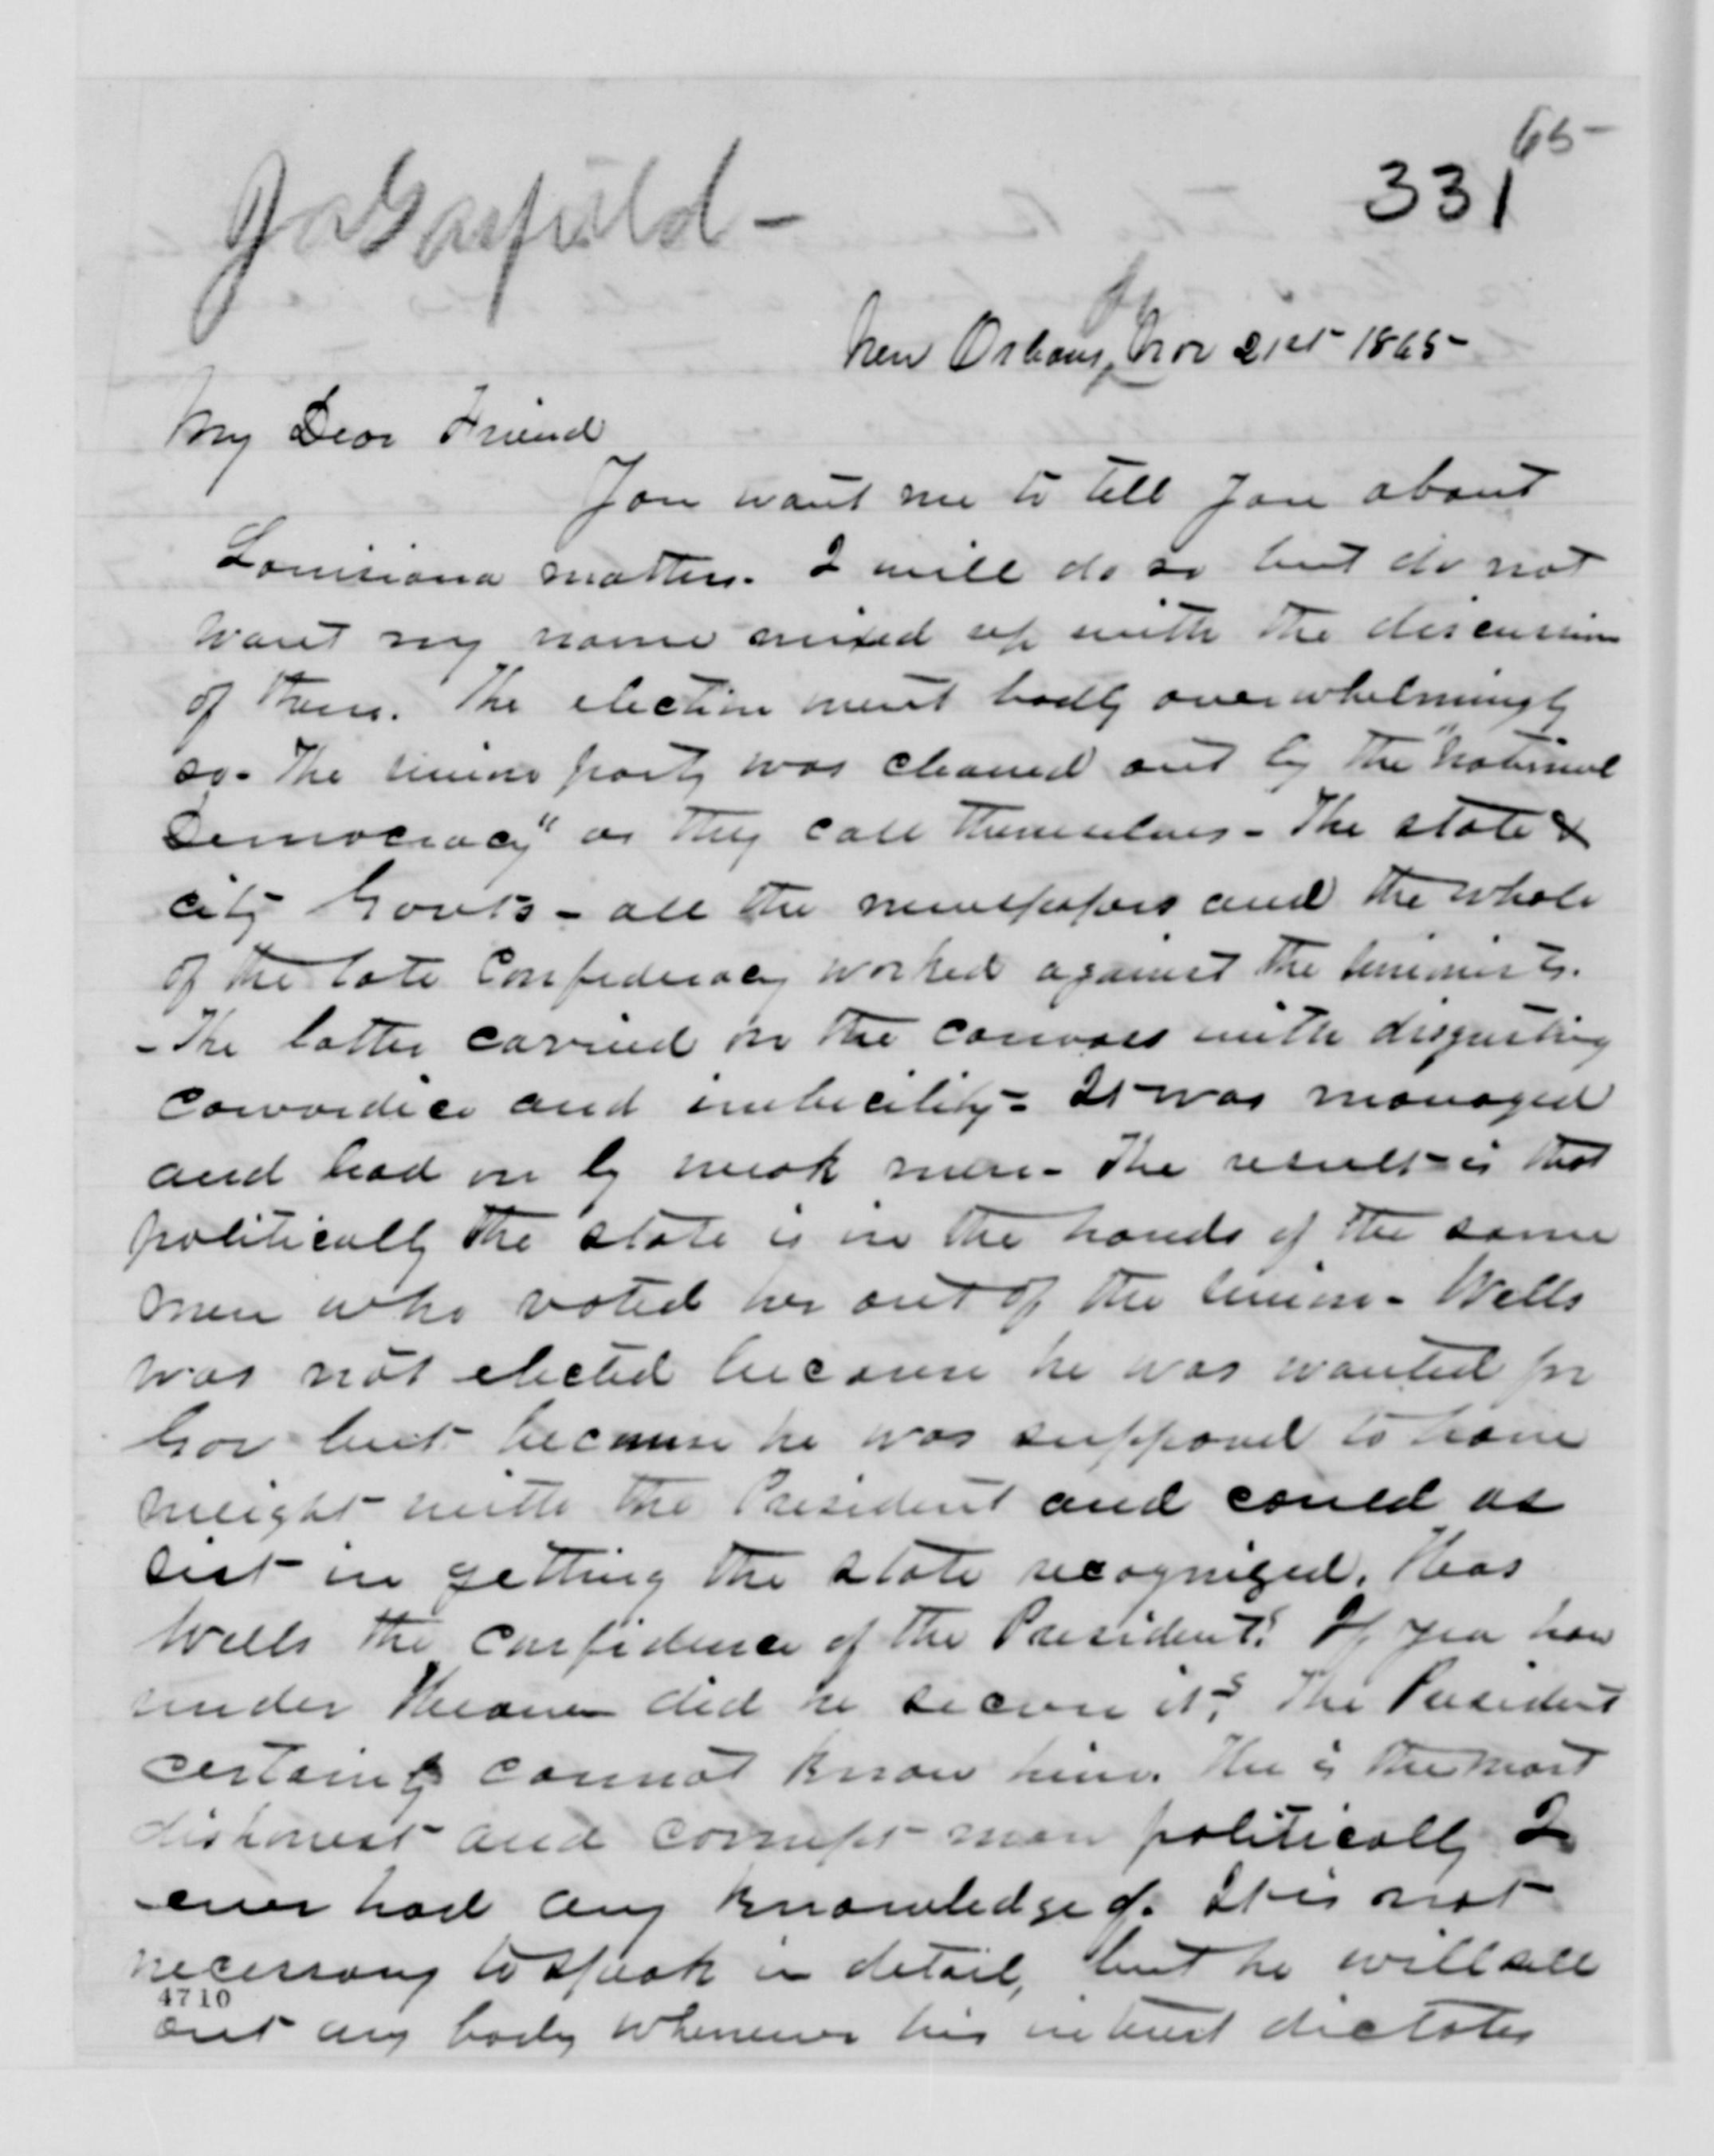 65-
331
JaGarfield-
New Orleans, Nov 21st 1865-
My Dear Friend
You want me to tell you about
Louisiana matters. I will do so but do not
want my name mixed up with the discussion
of them. The election went badly overwhelmingly
so- The union party was cleaned out by the "National
Democracy" as they call themselves- The state &
city Govts- all the newspapers and the whole
of the late Confederacy worked against the Unionists.
- The latter carried on the canvass with disgusting
cowardice and imbecility- It was managed
and had on by weak men- The result is that
politically the state is in the hands of the same
men who voted her out of the Union- Wells
was not elected because he was wanted for
Gov but because he was supposed to have
weight with the President and could as
sist in getting the state recognized. Has
Wells the confidence of the President? If yea how
under Heaven did he secure it? The President
certainly cannot know him. He is the most
dishonest and corrupt man politically I
ever had any knowledge of. It is not
necessary to speak in detail, but he will sell
4710
out any body whenever his interest dictates